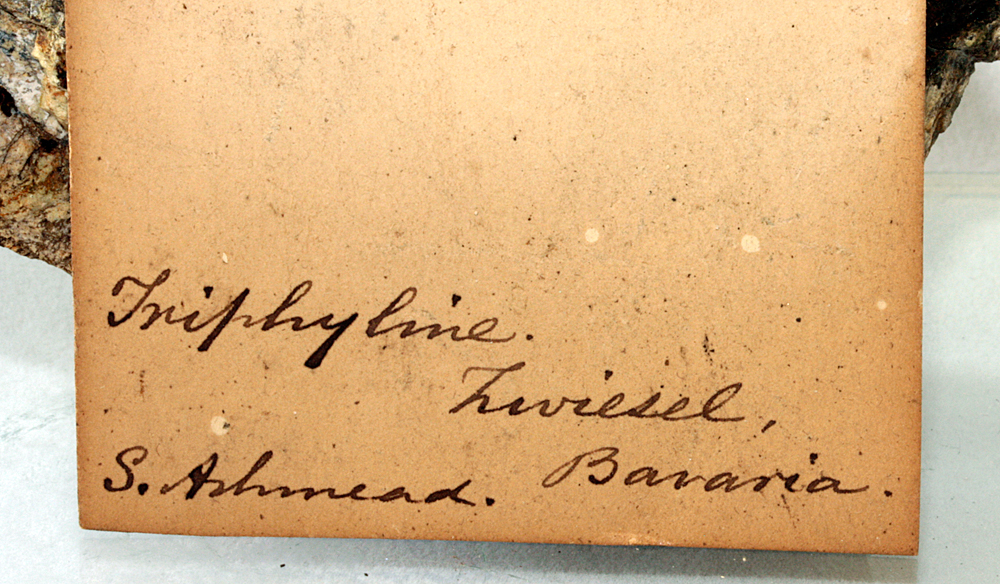 Triphyline.
Zwiesel,
S. Ashmead. Bavaria.